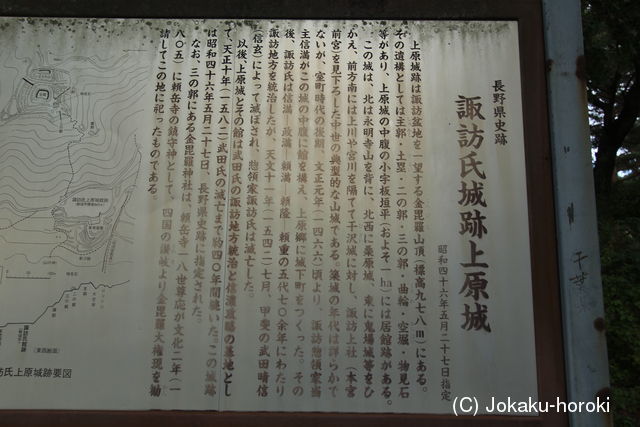 長野県史跡
諏訪氏城跡上原城
昭和四十六年五月二十七日指定
上原城跡は諏訪盆地を一望する金毘羅山頂(標高九七八m)にある。
その遺構としては主郭・土塁・二の郭・三の郭・曲輪・空堀・物見石
等があり、上原城の中腹の小字板垣平(およそ一ha)には居館跡がある。
この城は、北は永明寺山を背に、北西に桑原城、東に鬼場城等をひ
かえ、前方南には上川や宮川を隔てて干沢城に対し、諏訪上社(本宮
前宮)を見下ろした中世の典型的な山城である。築城の年代は詳らかで
ないが、室町時代の後期、文正元年(一四六六)頃より、諏訪惣領家当
主信満がこの城の中腹に館を構え、上原郷に城下町をつくった。その
後、諏訪氏は信満―政満―頼満―頼隆―頼重の五代七〇余年にわたり
諏訪地方を統治したが、天文十一年(一五四二)七月、甲斐の武田晴信
(信玄)によって滅ぼされ、惣領家諏訪氏は滅亡した。
以後、上原城とその館は武田氏の諏訪地方統治と信濃攻略の基地とし
て、天正十年(一五八二)武田氏の滅亡まで約四〇年間続いた。この城跡
は昭和四十六年五月二十七日、長野県史跡に指定された。
なお、三の郭にある金毘羅神社は、頼岳寺一八世尊応が文化二年(一
八〇五)に頼岳寺の鎮守神として、四国の讃岐より金毘羅大権現を勧
請してこの地に祀ったものである。
諏訪氏上原城跡
訪氏上原城跡要図
(C) Jokaku-horoki